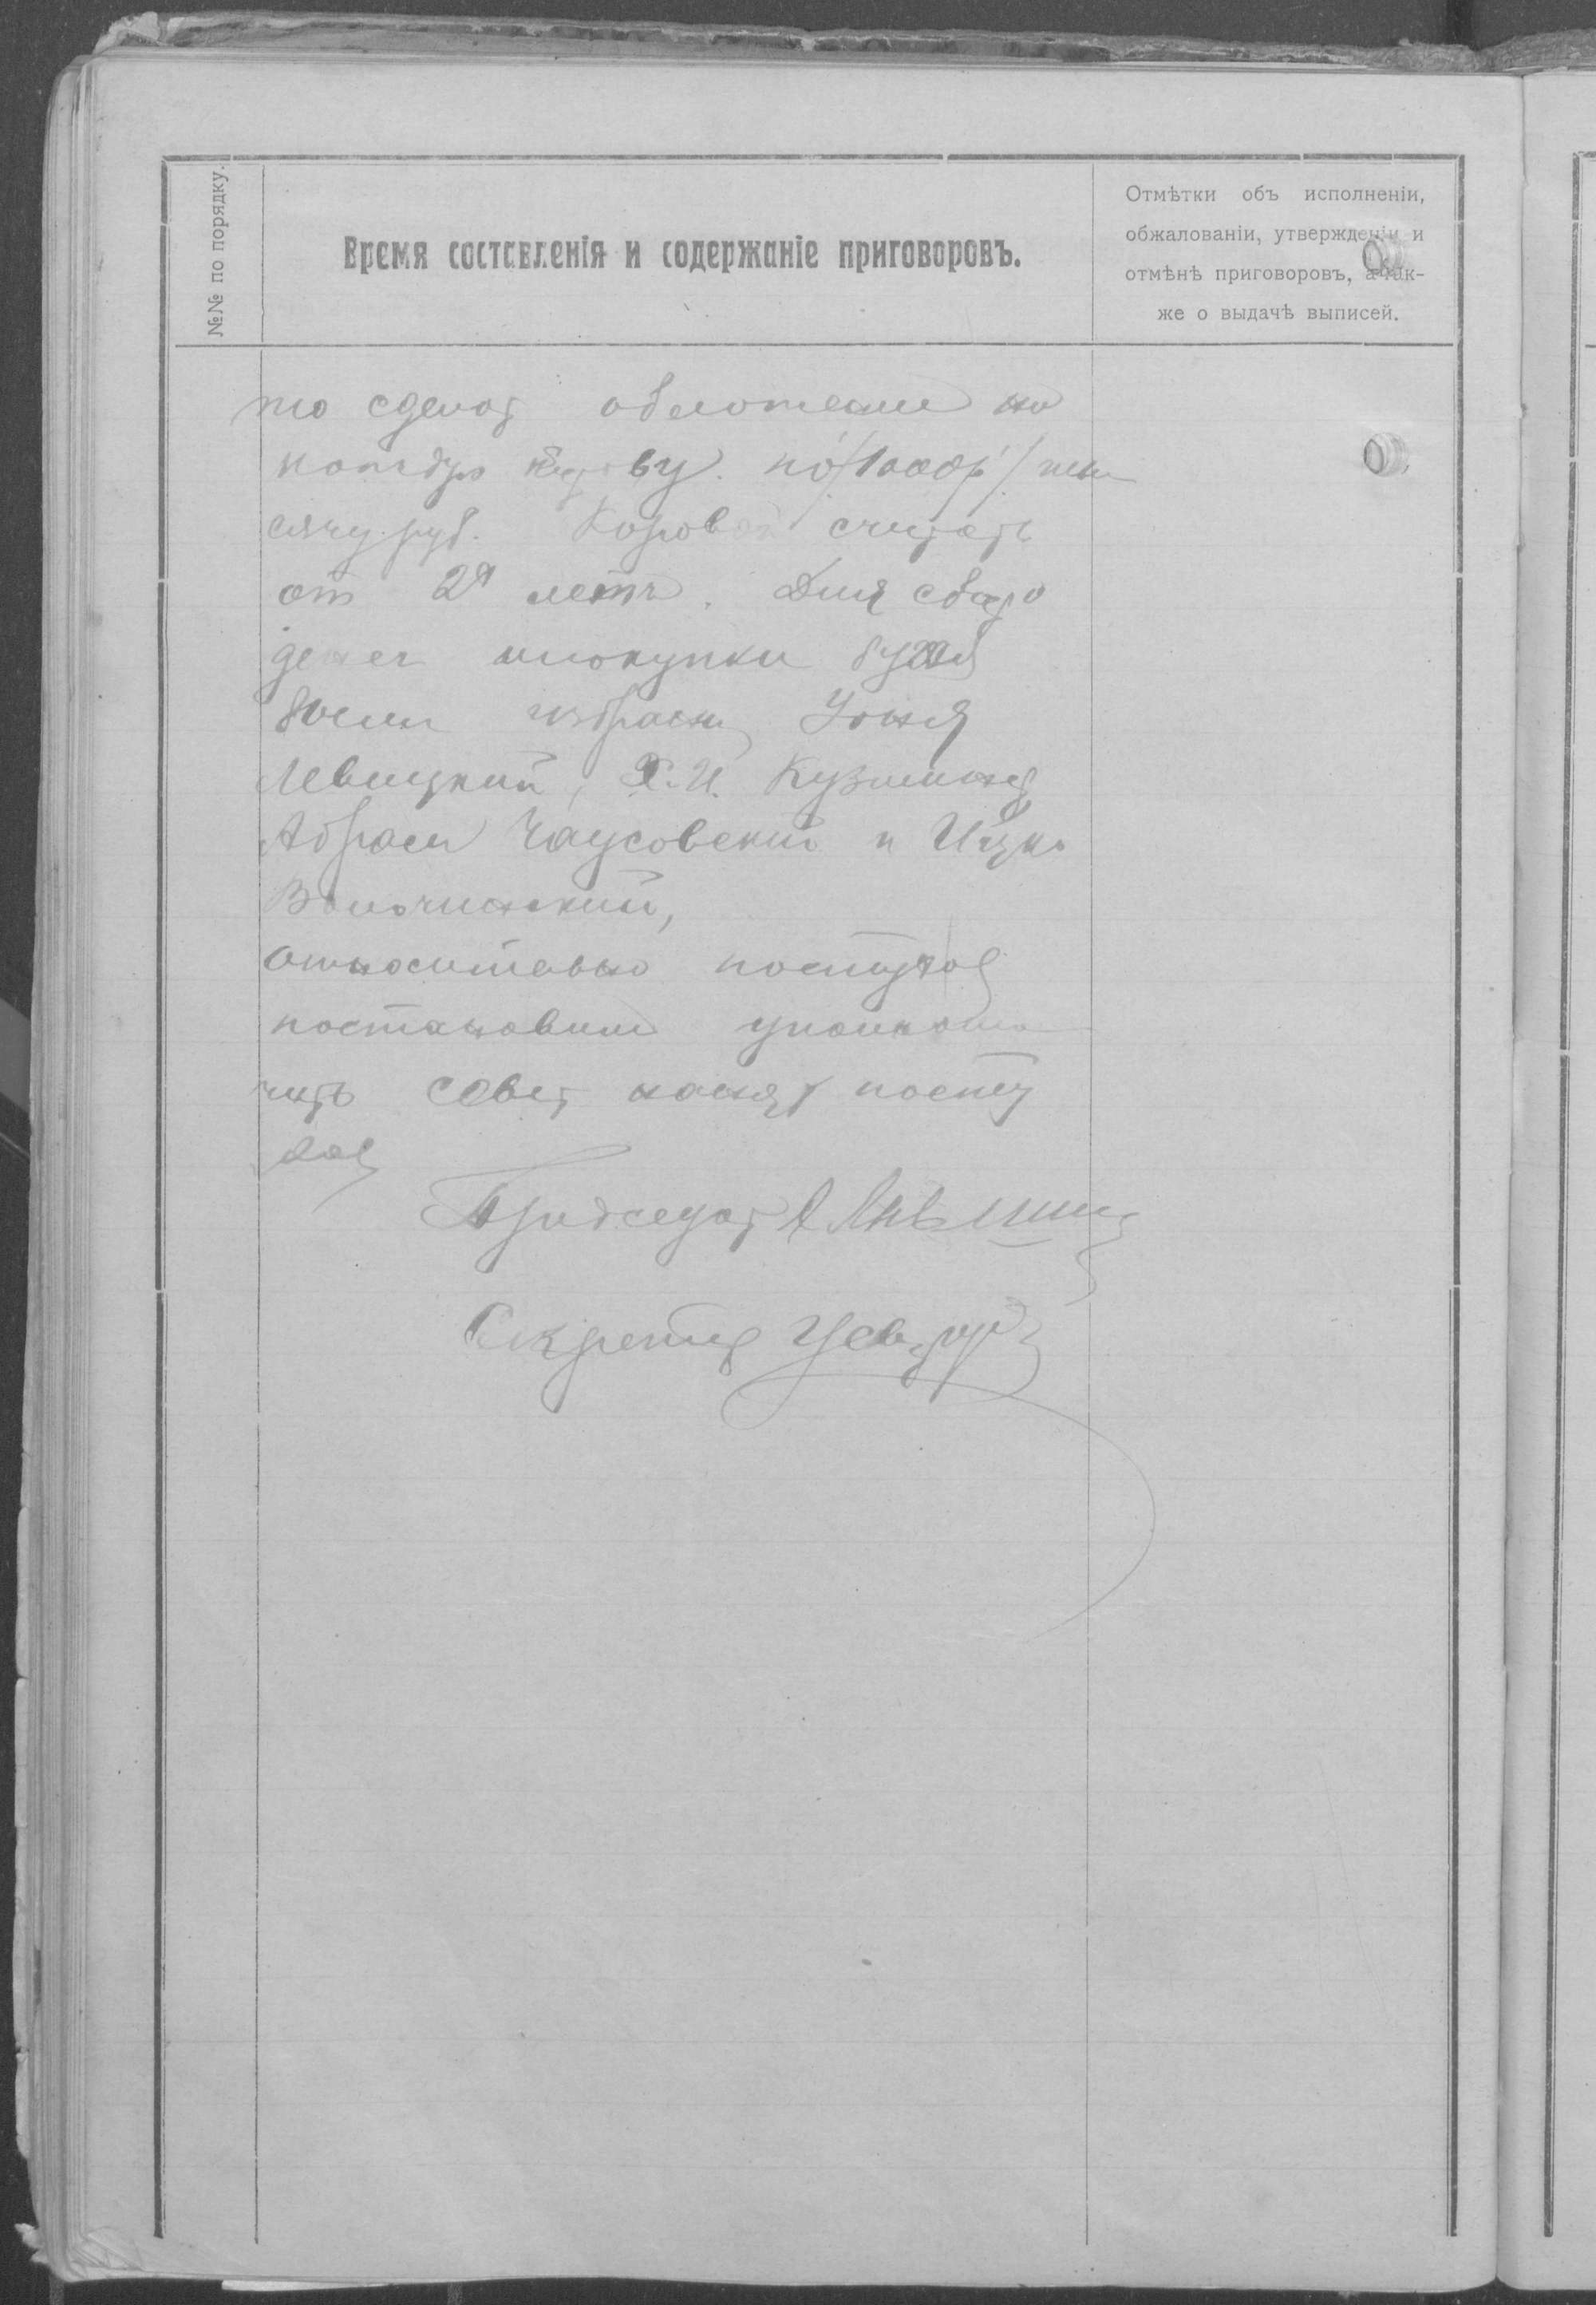 №№ по порядку.
Время составленія и содержаніе приговоровъ.
Отмѣтки объ исполненіи,
обжалованіи, утвержденіи и
отмѣнѣ приговоровъ, а так-
же о выдачѣ выписей.
то сделат обложение на
кождую корову по /1000р/ ты
сячу руб. Коров считать
от 2х летъ. Для сбора
денег и покупки
избраны
Левицкий, Х.И. Кузминец
Абрам Чаусовский и Ицко
Волочинский,
относительно постухов
постановили уполномо
чить совет нанять посту
хов
Председат
Секретар